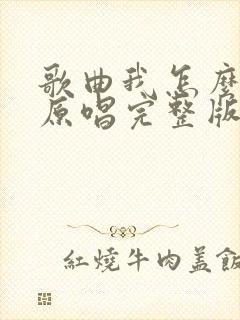 歌曲我怎麼
原唱完整版
紅燒牛肉蓋飯